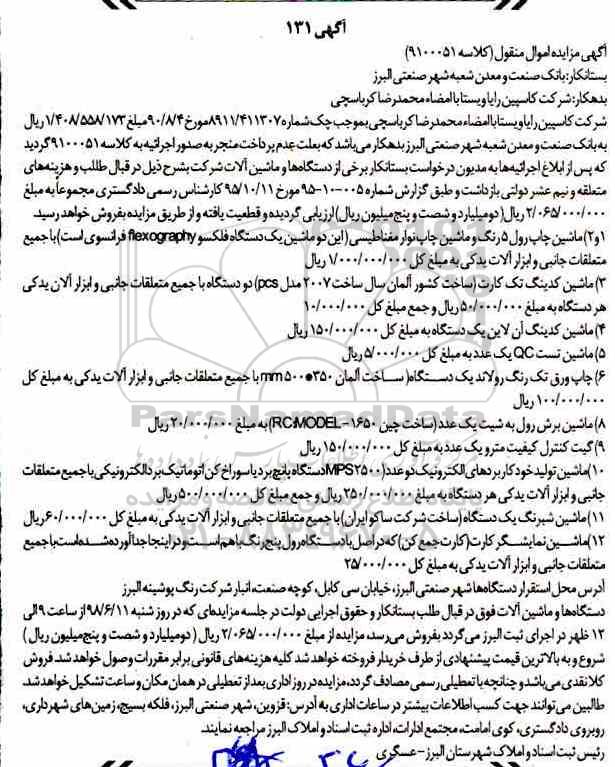 آگهی ۱۳۱
آگهی مزایده اموال منقول (کلاسه ۹۱۰۰۰۵۱)
بستانکار: بانک صنعت و معدن شعبه شهر صنعتی البرز
بدهکار: شرکت کاسپین رایا ویستا با امضاء محمدرضا کرباسچی
شرکت کاسپین رایا ویستا با امضاء محمدرضا کرباسچی بموجب چک شماره ۸۹۱۱/۴۱۱۳۰۷ مورخ ۹۰/۸/۴ مبلغ ۱/۴۰۸/۵۵۸/۱۷۳ ریال
به بانک صنعت و معدن شعبه شهر صنعتی البرز بدهکار می باشد که بعلت عدم پرداخت منجر به صدور اجرائیه به کلاسه ۹۱۰۰۰۵۱ گردید
که پس از ابلاغ اجرائیه ها به مدیون درخواست بستانکار برخی از دستگاه ها و ماشین آلات شرکت بشرح ذیل در قبال طلب و هزینه های
متعلقه و نیم عشر دولتی بازداشت و طبق گزارش شماره ۰۰۵-۱۰-۹۵ مورخ ۹۵/۱۰/۱۱ کارشناس رسمی دادگستری مجموعاً به مبلغ
۲/۰۶۵/۰۰۰/۰۰۰ ریال (دو میلیارد و شصت و پنج میلیون ریال) ارزیابی گردیده و قطعیت یافته و از طریق مزایده بفروش خواهد رسید.
۱و۲) ماشین چاپ رول ۵ رنگ و ماشین چاپ نوار مغناطیسی (این دو ماشین یک دستگاه فلکسو flexography فرانسوی است) با جمیع
متعلقات جانبی و ابزار آلات یدکی به مبلغ کل ۱/۰۰۰/۰۰۰/۰۰۰ ریال
۳) ماشین کدینگ تک کارت (ساخت کشور آلمان سال ساخت ۲۰۰۷ مدل pcs) دو دستگاه با جمیع متعلقات جانبی و ابزار آلان یدکی
هر دستگاه به مبلغ ۵۰/۰۰۰/۰۰۰ ریال و جمع مبلغ کل ۱۰/۰۰۰/۰۰۰
۴) ماشین کدینگ آن لاین یک دستگاه به مبلغ کل ۱۵۰/۰۰۰/۰۰۰ ریال
۵) ماشین تست QC یک عدد به مبلغ کل ۵/۰۰۰/۰۰۰ ریال
۶) چاپ ورق تک رنگ رولاند یک دستگاه (ساخت آلمان ۳۵۰●۵۰۰ mm با جمیع متعلقات جانبی و ابزار آلات یدکی به مبلغ کل
۱۰۰/۰۰۰/۰۰۰ ریال
۸) ماشین برش رول به شیت یک عدد (ساخت چین ۱۶۵۰ - RC:MODEL) به مبلغ ۲۰/۰۰۰/۰۰۰ ریال
۹) گیت کنترل کیفیت مترو یک عدد به مبلغ کل ۱۵۰/۰۰۰/۰۰۰ ریال
۱۰) ماشین تولید خودکار بردهای الکترونیک دو عدد (MPS۲۵۰۰ دستگاه پانچ برد یا سوراخ کن اتوماتیک برد الکترونیکی با جمیع متعلقات
جانبی و ابزار آلات یدکی هر دستگاه به مبلغ ۲۵۰/۰۰۰/۰۰۰ ریال و جمع مبلغ کل ۵۰۰/۰۰۰/۰۰۰ ریال
۱۱) ماشین شبرنگ یک دستگاه (ساخت شرکت ساکو ایران) با جمیع متعلقات جانبی و ابزار آلات یدکی به مبلغ کل ۶۰/۰۰۰/۰۰۰ ریال
۱۲) ماشین نمایشگر کارت (کارت جمع کن) که در اصل با دستگاه رول پنج رنگ با هم است و در اینجا جدا آورده شده است با جمیع
متعلقات جانبی و ابزار آلات یدکی به مبلغ کل ۲۵/۰۰۰/۰۰۰
آدرس محل استقرار دستگاه ها شهر صنعتی البرز، خیابان سی کابل، کوچه صنعت، انبار شرکت رنگ پوشینه البرز
دستگاه ها و ماشین آلات فوق در قبال طلب بستانکار و حقوق اجرایی دولت در جلسه مزایده ای که در روز شنبه ۹۸/۶/۱۱ از ساعت ۹ الی
۱۲ ظهر در اجرای ثبت البرز می گردد بفروش می رسد، مزایده از مبلغ ۲/۰۶۵/۰۰۰/۰۰۰ ریال (دو میلیارد و شصت و پنج میلیون ریال)
شروع و به بالاترین قیمت پیشنهادی از طرف خریدار فروخته خواهد شد کلیه هزینه های قانونی برابر مقررات وصول خواهد شد. فروش
کلا نقدی می باشد و چنانچه با تعطیلی رسمی مصادف گردد، مزایده در روز اداری بعد از تعطیلی در همان مکان و ساعت تشکیل خواهد شد.
طالبین می توانند جهت کسب اطلاعات بیشتر در ساعات اداری به آدرس: قزوین، شهر صنعتی البرز، فلکه بسیج، زمین های شهرداری،
روبروی دادگستری، کوی امامت، مجتمع ادارات، اداره ثبت اسناد و املاک البرز مراجعه نمایند.
رئیس ثبت اسناد و املاک شهرستان البرز - عسگری
ParsNamadData